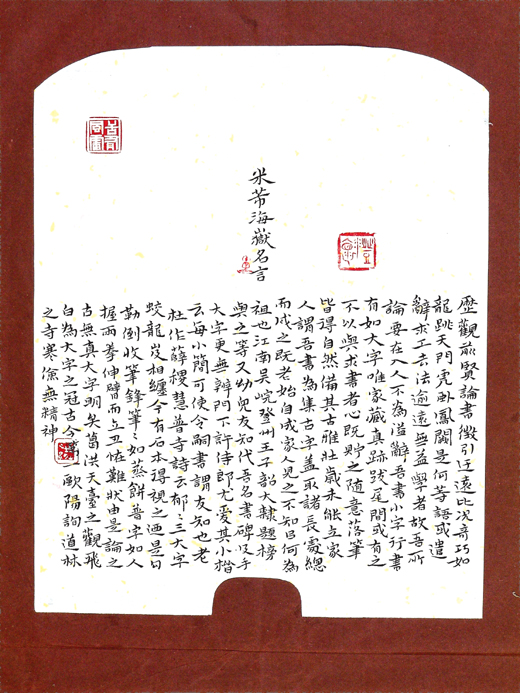 米芾海嶽名言
歷觀前賢論書徵引迂遠比況奇巧如
龍跳天門虎卧鳳闕是何等語或遣
辭求工去法逾遠無益學者故吾所
論要在入人不為溢辭吾書小字行書
有如大字唯家藏真跡跋尾間或有之
不以與求書者心既貯之隨意落筆
皆得自然備其古雅壯歲未能立家
人謂吾書為集古字蓋取諸長處總
而成之既老始自成家人見之不知以何為
祖也江南吳皖登州王子韶大隸題榜
與之等又幼兒友知代吾名書碑及手
大字更無辨門下許侍郎尤愛其小楷
云每小簡可使令嗣書謂友知也老
杜作薛稷慧普寺詩云郁々三大字
蛟龍岌相纏今有石本得視之迺是勾
勒倒收筆鋒筆々如蒸餅普字如人
握兩拳伸臂而立丑怪難狀由是論之
古無真大字明矣葛洪天臺之觀飛
白為大字之冠古今第一歐陽詢道林
之寺寒儉無精神